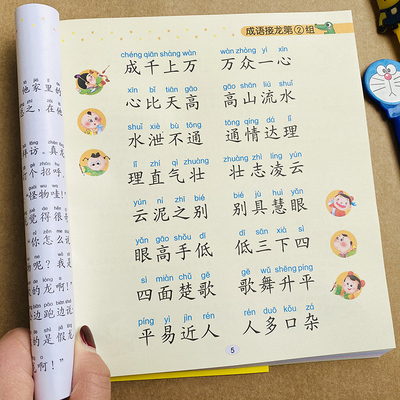 成语接龙第②组
chéng qiān shàng wàn wàn zhòng yì xīn
成千上万 万众一心
xīn bǐ tiān gāo gāo shān liú shuǐ
心比天高 高山流水
shuǐ xiè bù tōng tōng qíng dá lǐ
水泄不通 通情达理
lǐ zhí qì zhuàng zhuàng zhì líng yún
理直气壮 壮志凌云
yún ní zhī bié bié jù huì yǎn
云泥之别 别具慧眼
yǎn gāo shǒu dī dī sān xià sì
眼高手低 低三下四
sì miàn chǔ gē gē wǔ shēng píng
四面楚歌 歌舞升平
píng yì jìn rén rén duō kǒu zá
平易近人 人多口杂
5
他家里的
之，在他
拜访。真龙
个招呼，
怪物哇！”
觉得很
“你怎么说
物呢？我是
的龙啊！”
边跑边说
的是假龙
啊！”